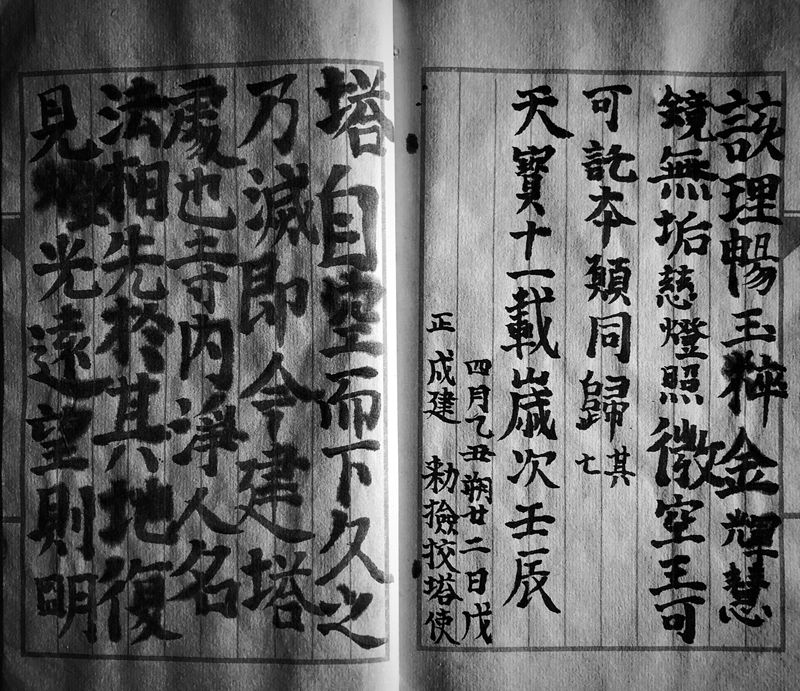 該理暢玉粹金輝慧
鏡無垢慈燈照微空王可
可託本願同歸其七
天寶十一載歲次壬辰
四月乙丑朔廿二日戊
正成建 勑撿挍塔使
塔自空而下久之
乃滅即今建塔
處也寺内淨人名
法相先於其地復
見燈光遠望則明